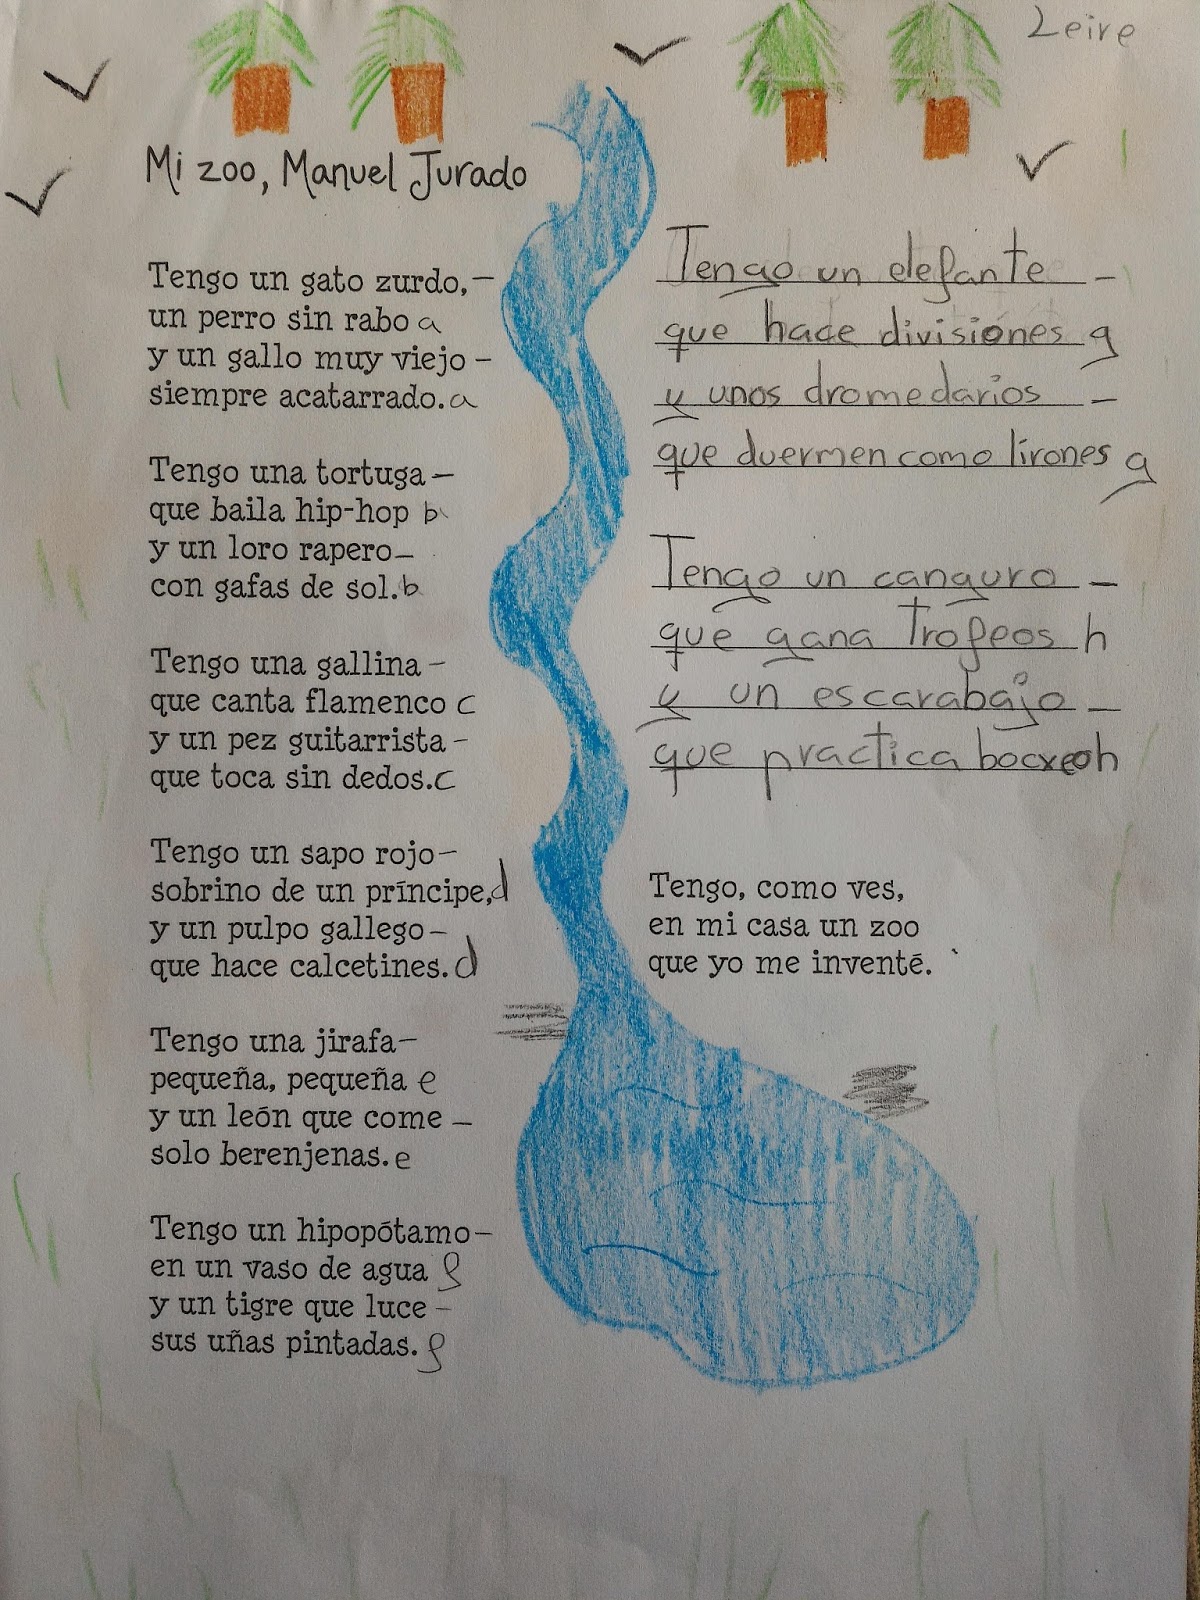 Leire
Mi zoo, Manuel Jurado
Tengo un gato zurdo, –
un perro sin rabo a
y un gallo muy viejo –
siempre acatarrado. a
Tengo una tortuga –
que baila hip-hop b
y un loro rapero –
con gafas de sol. b
Tengo una gallina –
que canta flamenco c
y un pez guitarrista –
que toca sin dedos. c
Tengo un sapo rojo –
sobrino de un príncipe, d
y un pulpo gallego –
que hace calcetines. d
Tengo una jirafa –
pequeña, pequeña e
y un león que come –
solo berenjenas. e
Tengo un hipopótamo –
en un vaso de agua f
y un tigre que luce –
sus uñas pintadas. f
Tengo un elefante –
que hace divisiones g
y unos dromedarios –
que duermen como lirones g
Tengo un canguro –
que gana trofeos h
y un escarabajo –
que practica bocxeo h
Tengo, como ves,
en mi casa un zoo
que yo me inventé.